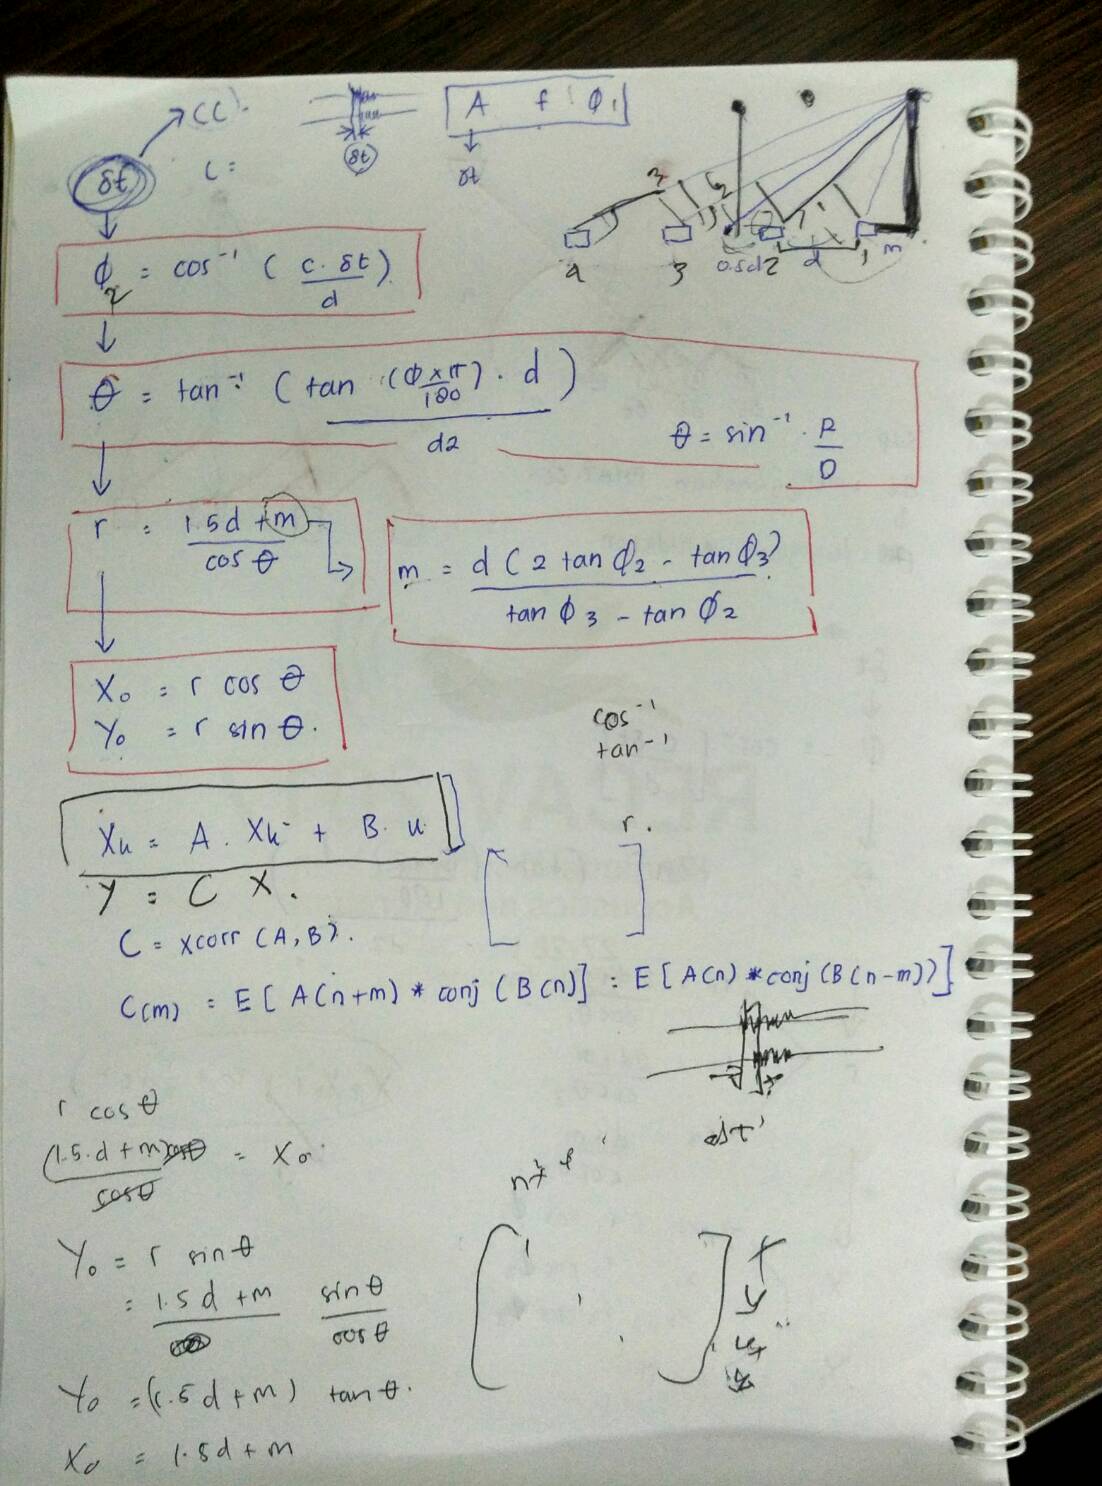 CC
δt
c =
δt
A f ϕ₁
δt
3
4 3 0.5d 2 d 1 m
ϕ₂ = cos⁻¹ ( c. δt / d )
θ = tan⁻¹ ( tan (ϕ×π/180) . d / d2 )
θ = sin⁻¹ . R / D
r = 1.5d + m / cos θ
m = d ( 2 tan ϕ₂ - tan ϕ₃) / tan ϕ₃ - tan ϕ₂
X₀ = r cos θ
Y₀ = r sin θ.
cos⁻¹
tan⁻¹
Xₖ = A . Xₖ⁻ + B. u
r.
Y = C X.
C = xcorr (A, B).
C(m) = E [ A(n+m) * conj (B(n)] = E [ A(n) * conj (B(n-m))]
r cos θ
(1.5.d + m) cosθ / cosθ = X₀
Y₀ = r sin θ
= 1.5d + m sin θ / cos θ
x
y
Y₀ = (1.5d + m) tan θ.
X₀ = 1.5d + m